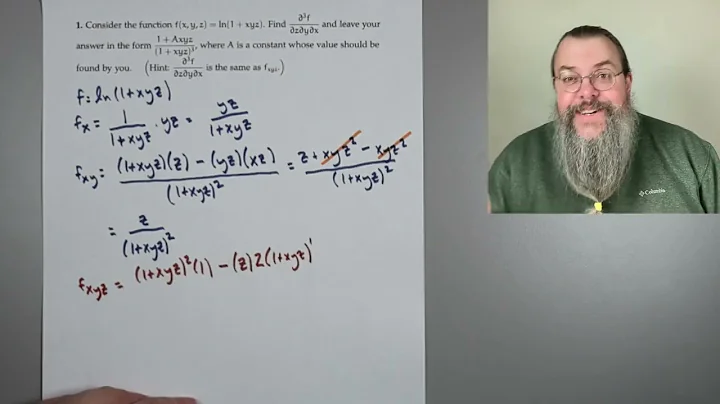 1. Consider the function f(x, y, z) = ln(1 + xyz). Find ∂³f/∂z∂y∂x and leave your
answer in the form (1 + Axyz)/(1 + xyz)³, where A is a constant whose value should be
found by you. (Hint: ∂³f/∂z∂y∂x is the same as fxyz.)
f = ln(1+xyz)
fx = 1/(1+xyz) · yz = yz/(1+xyz)
fxy = ((1+xyz)(z) − (yz)(xz))/(1+xyz)² = (z + xyz² − xyz²)/(1+xyz)²
= z/(1+xyz)²
fxyz = (1+xyz)²(1) − (z)2(1+xyz)¹
Columbia